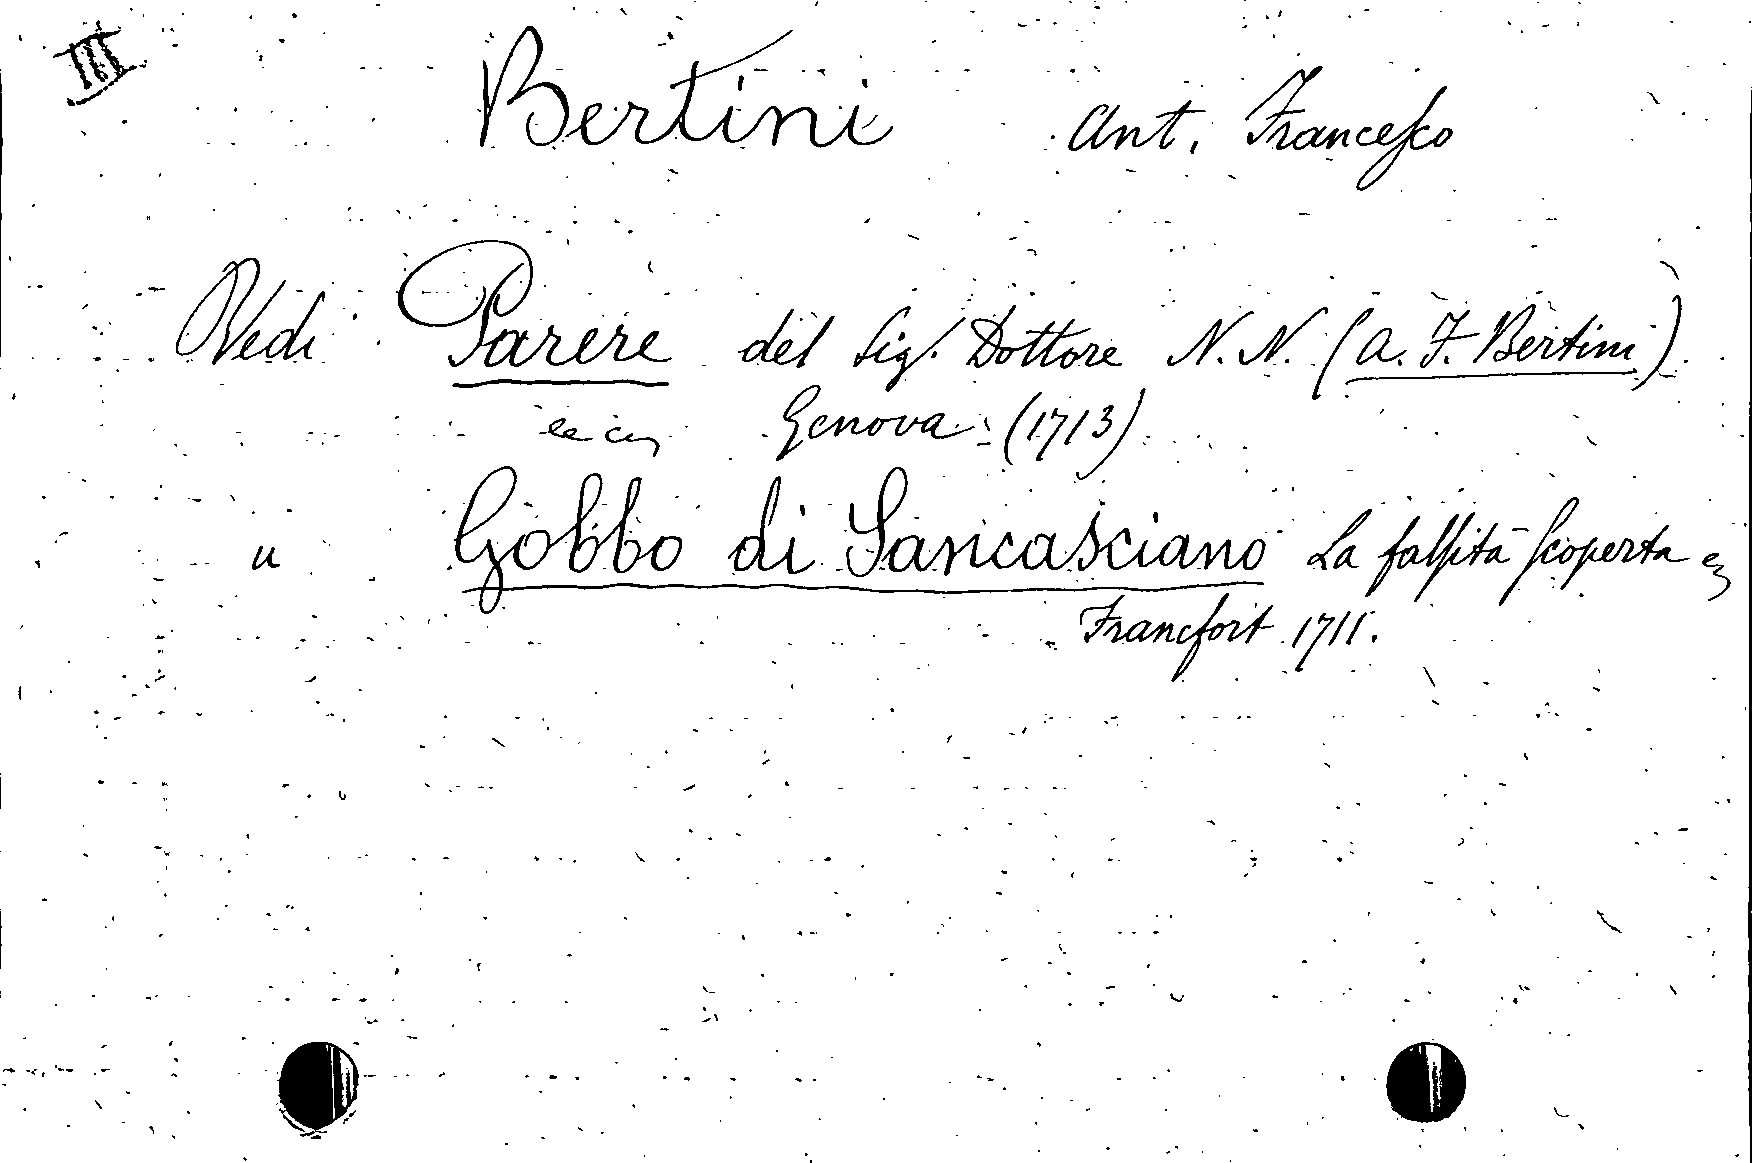 III
Bertini Ant. Francesco
Vedi Parere del Sig. Dottore N. N. (A. F. Bertini)
Genova (1713)
" Gobbo di Sancasciano La falsità scoperta
Francfort 1711.